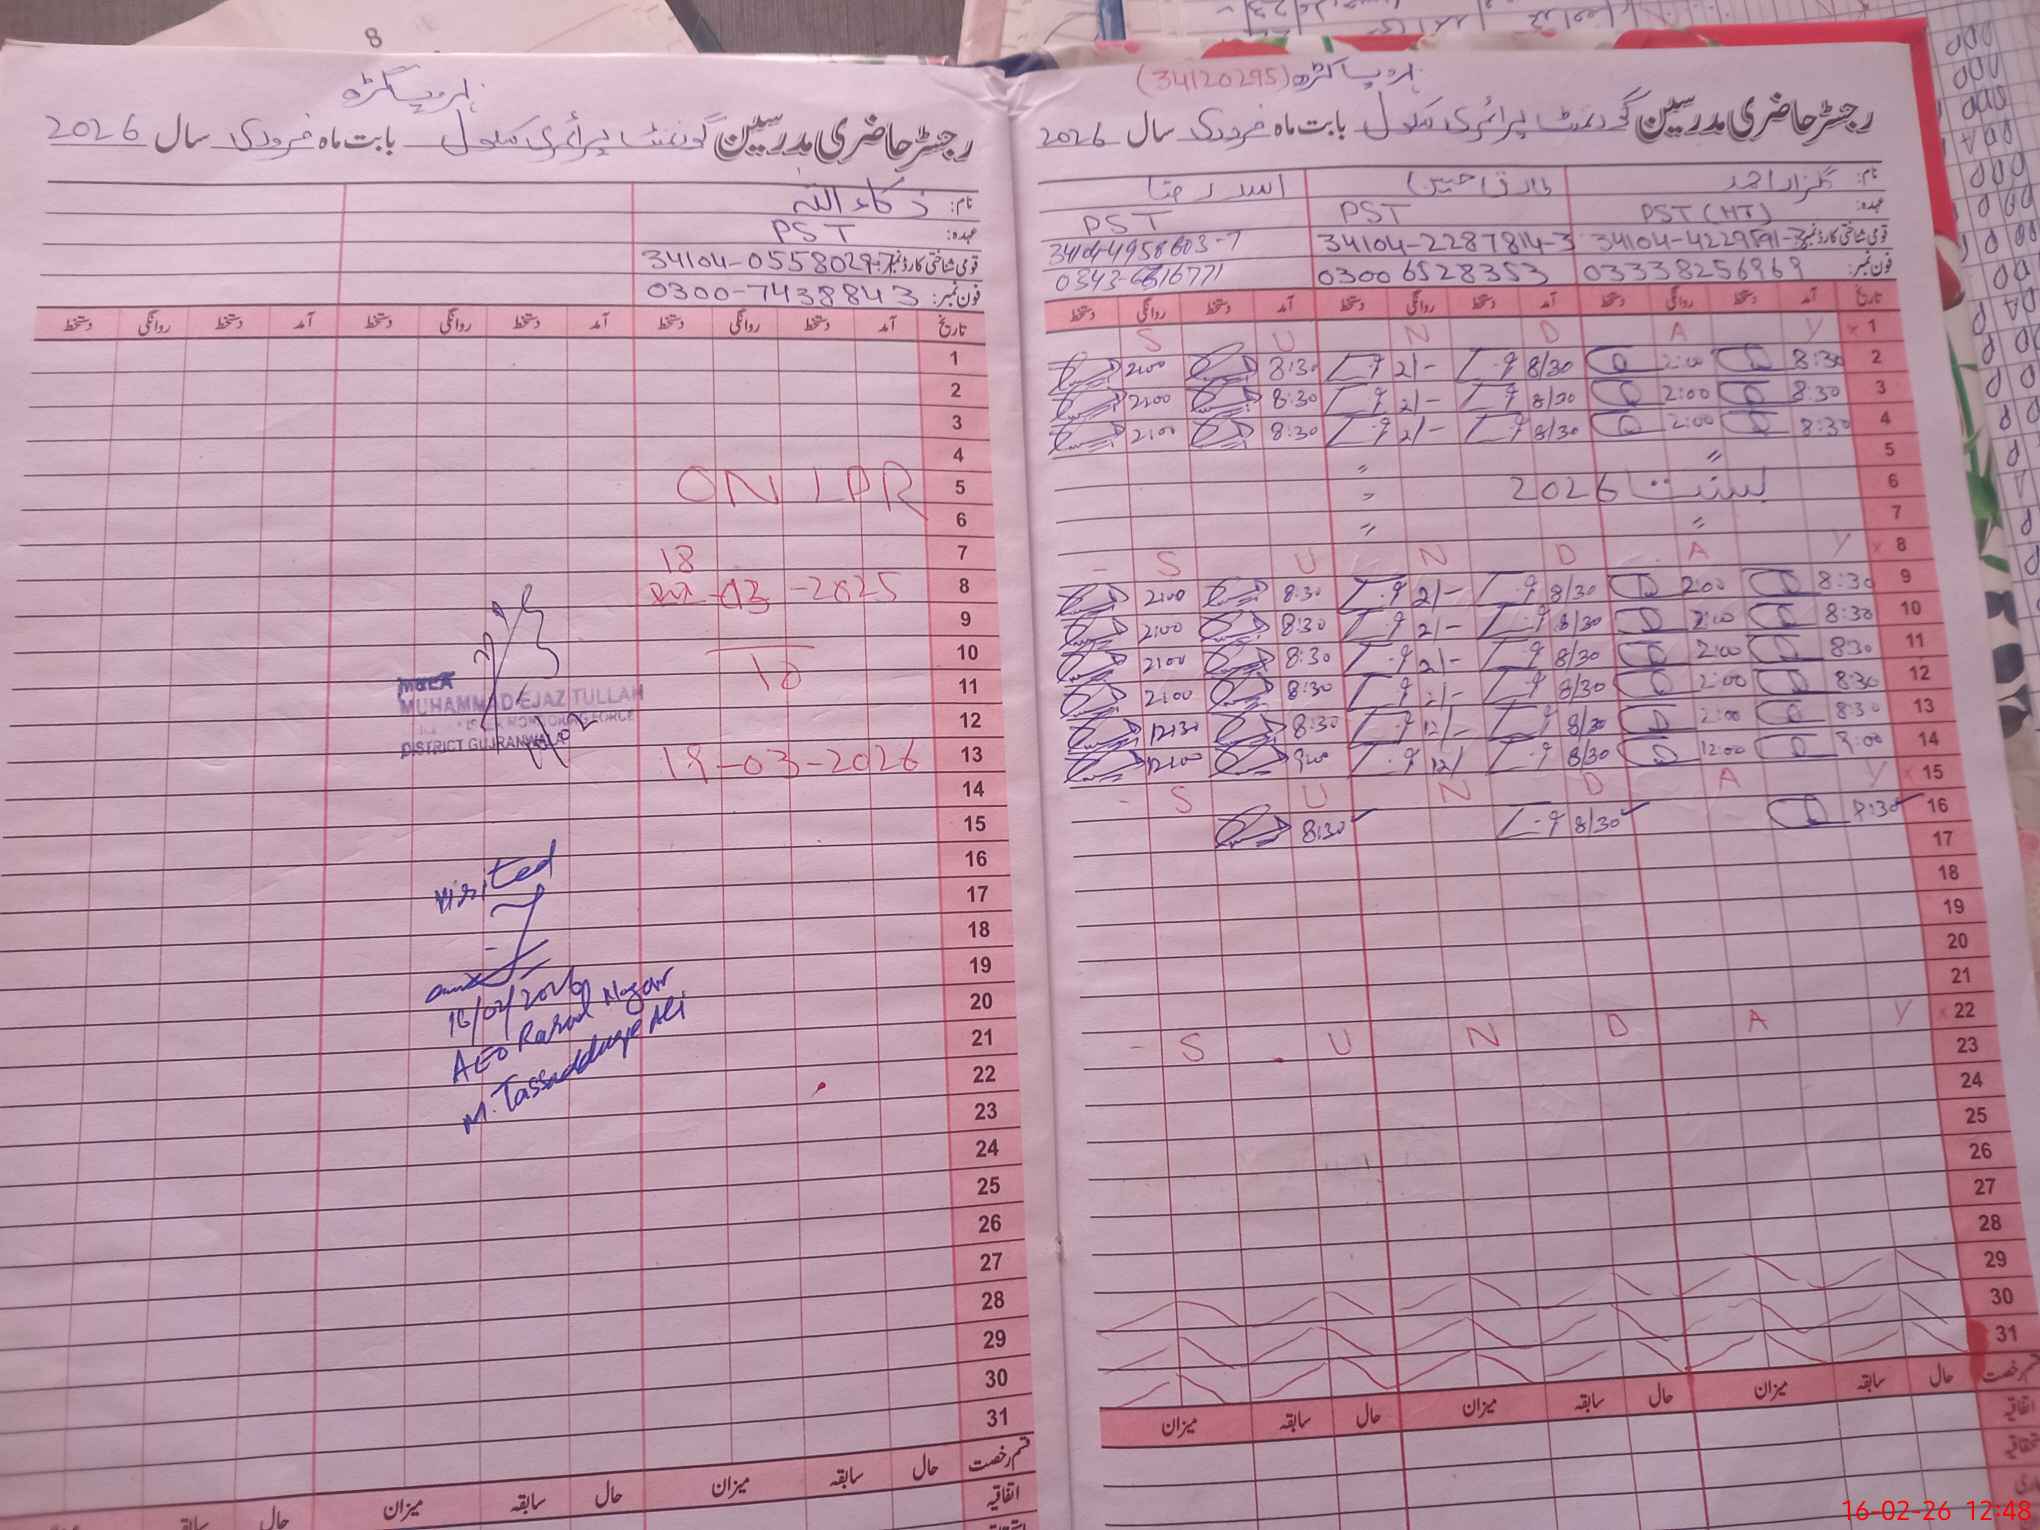 8
نارو پیا گڑھ
رجسٹر حاضری مدرسین گورنمنٹ پرائمری سکول بابت ماہ فروری سال 2026
نام: ذکاء اللہ
عہدہ: PST
قومی شناختی کارڈ نمبر: 34104-0558029-7
فون نمبر: 0300-7438843
تاریخ آمد دستخط روانگی دستخط آمد دستخط روانگی دستخط آمد دستخط روانگی دستخط
1
2
3
4
5 ON LPR
6
7 18
8 -03-2025
9
10
11 TO
12
13 18-03-2026
14
15
16
17
18
19
20
21
22
23
24
25
26
27
28
29
30
31
MUHAMMAD EJAZ TULLAH
DISTRICT GUJRANWALA
visited
16/02/2026
AEO Rasul Nagar
M. Tassadduqe Ali
قسم رخصت حال سابقہ میزان حال سابقہ میزان حال سابقہ
اتفاقیہ
(34120295)
رجسٹر حاضری مدرسین گورنمنٹ پرائمری سکول بابت ماہ فروری سال 2026
نام: گلزار احمد طارق حسین اسد رضا
عہدہ: PST (HT) PST PST
قومی شناختی کارڈ نمبر: 34104-2287814-3
فون نمبر: 03338256969 0300 6528353
تاریخ آمد دستخط روانگی دستخط آمد دستخط روانگی دستخط آمد دستخط روانگی دستخط
1 × S U N D A Y
2 8:30 2:00 8/30 2/- 8:30 2:00
3 8:30 2:00 8/30 2/- 8:30 2:00
4 8:30 2:00 8/30 2/- 8:30 2:00
5 〃 〃
6 بسنت 2026 〃
7 〃 〃
8 × S U N D A Y -
9 8:30 2:00 8/30 2/- 8:30 2:00
10 8:30 2:00 8/30 2/- 8:30 2:00
11 8:30 2:00 8/30 2/- 8:30 2:00
12 8:30 2:00 8/30 2/- 8:30 2:00
13 8:30 2:00 8/30 12/- 8:30 12:30
14 9:00 12:00 8/30 12/ 9:00 12:00
15 × S U N D A Y -
16 8:30 ✓ 8/30 ✓ 8:30 ✓
17
18
19
20
21
22 × S U N D A Y -
23
24
25
26
27
28
29
30
31
قسم رخصت حال سابقہ میزان حال سابقہ میزان حال سابقہ میزان
اتفاقیہ
16-02-26 12:48